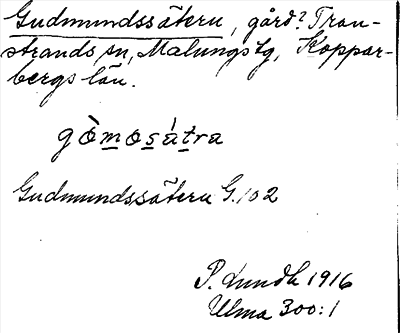 Gudmundssätern, gård? Tran-
strands sn, Malungs tg, Koppar-
bergs län.
gòmosátra
Gudmundssätern G. 102
P. Lundh 1916
Ulma 300:1